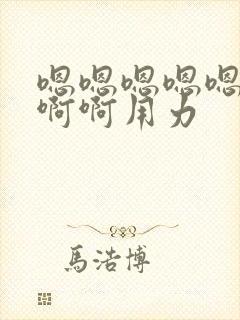 嗯嗯嗯嗯嗯
啊啊用力
馬浩博